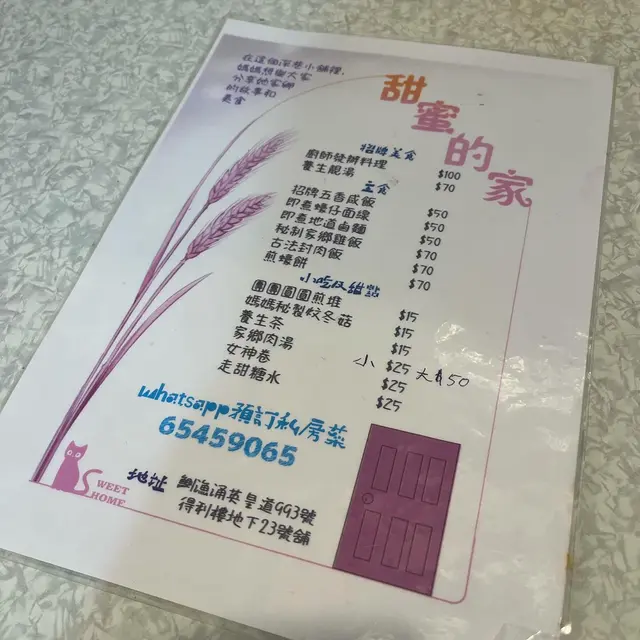 在這個深巷小舖裡,
媽媽想與大家
分享她家鄉
的故事和
美食
甜蜜的家
招牌美食
廚師發辦料理 $100
養生靚湯 $70
主食
招牌五香咸飯 $50
即煮蠔仔面線 $50
即煮地道鹵麵 $50
秘制家鄉雞飯 $70
古法封肉飯 $70
煎蠔餅 $70
小吃及甜點
團團圓圓煎堆 $15
媽媽秘製炆冬菇 $15
養生茶 $15
家鄉肉湯 小 $25 大$50
女神卷 $25
走甜糖水 $25
whatsapp預訂私房菜
65459065
地址
鰂魚涌英皇道993號
得利樓地下23號舖
SWEET
HOME